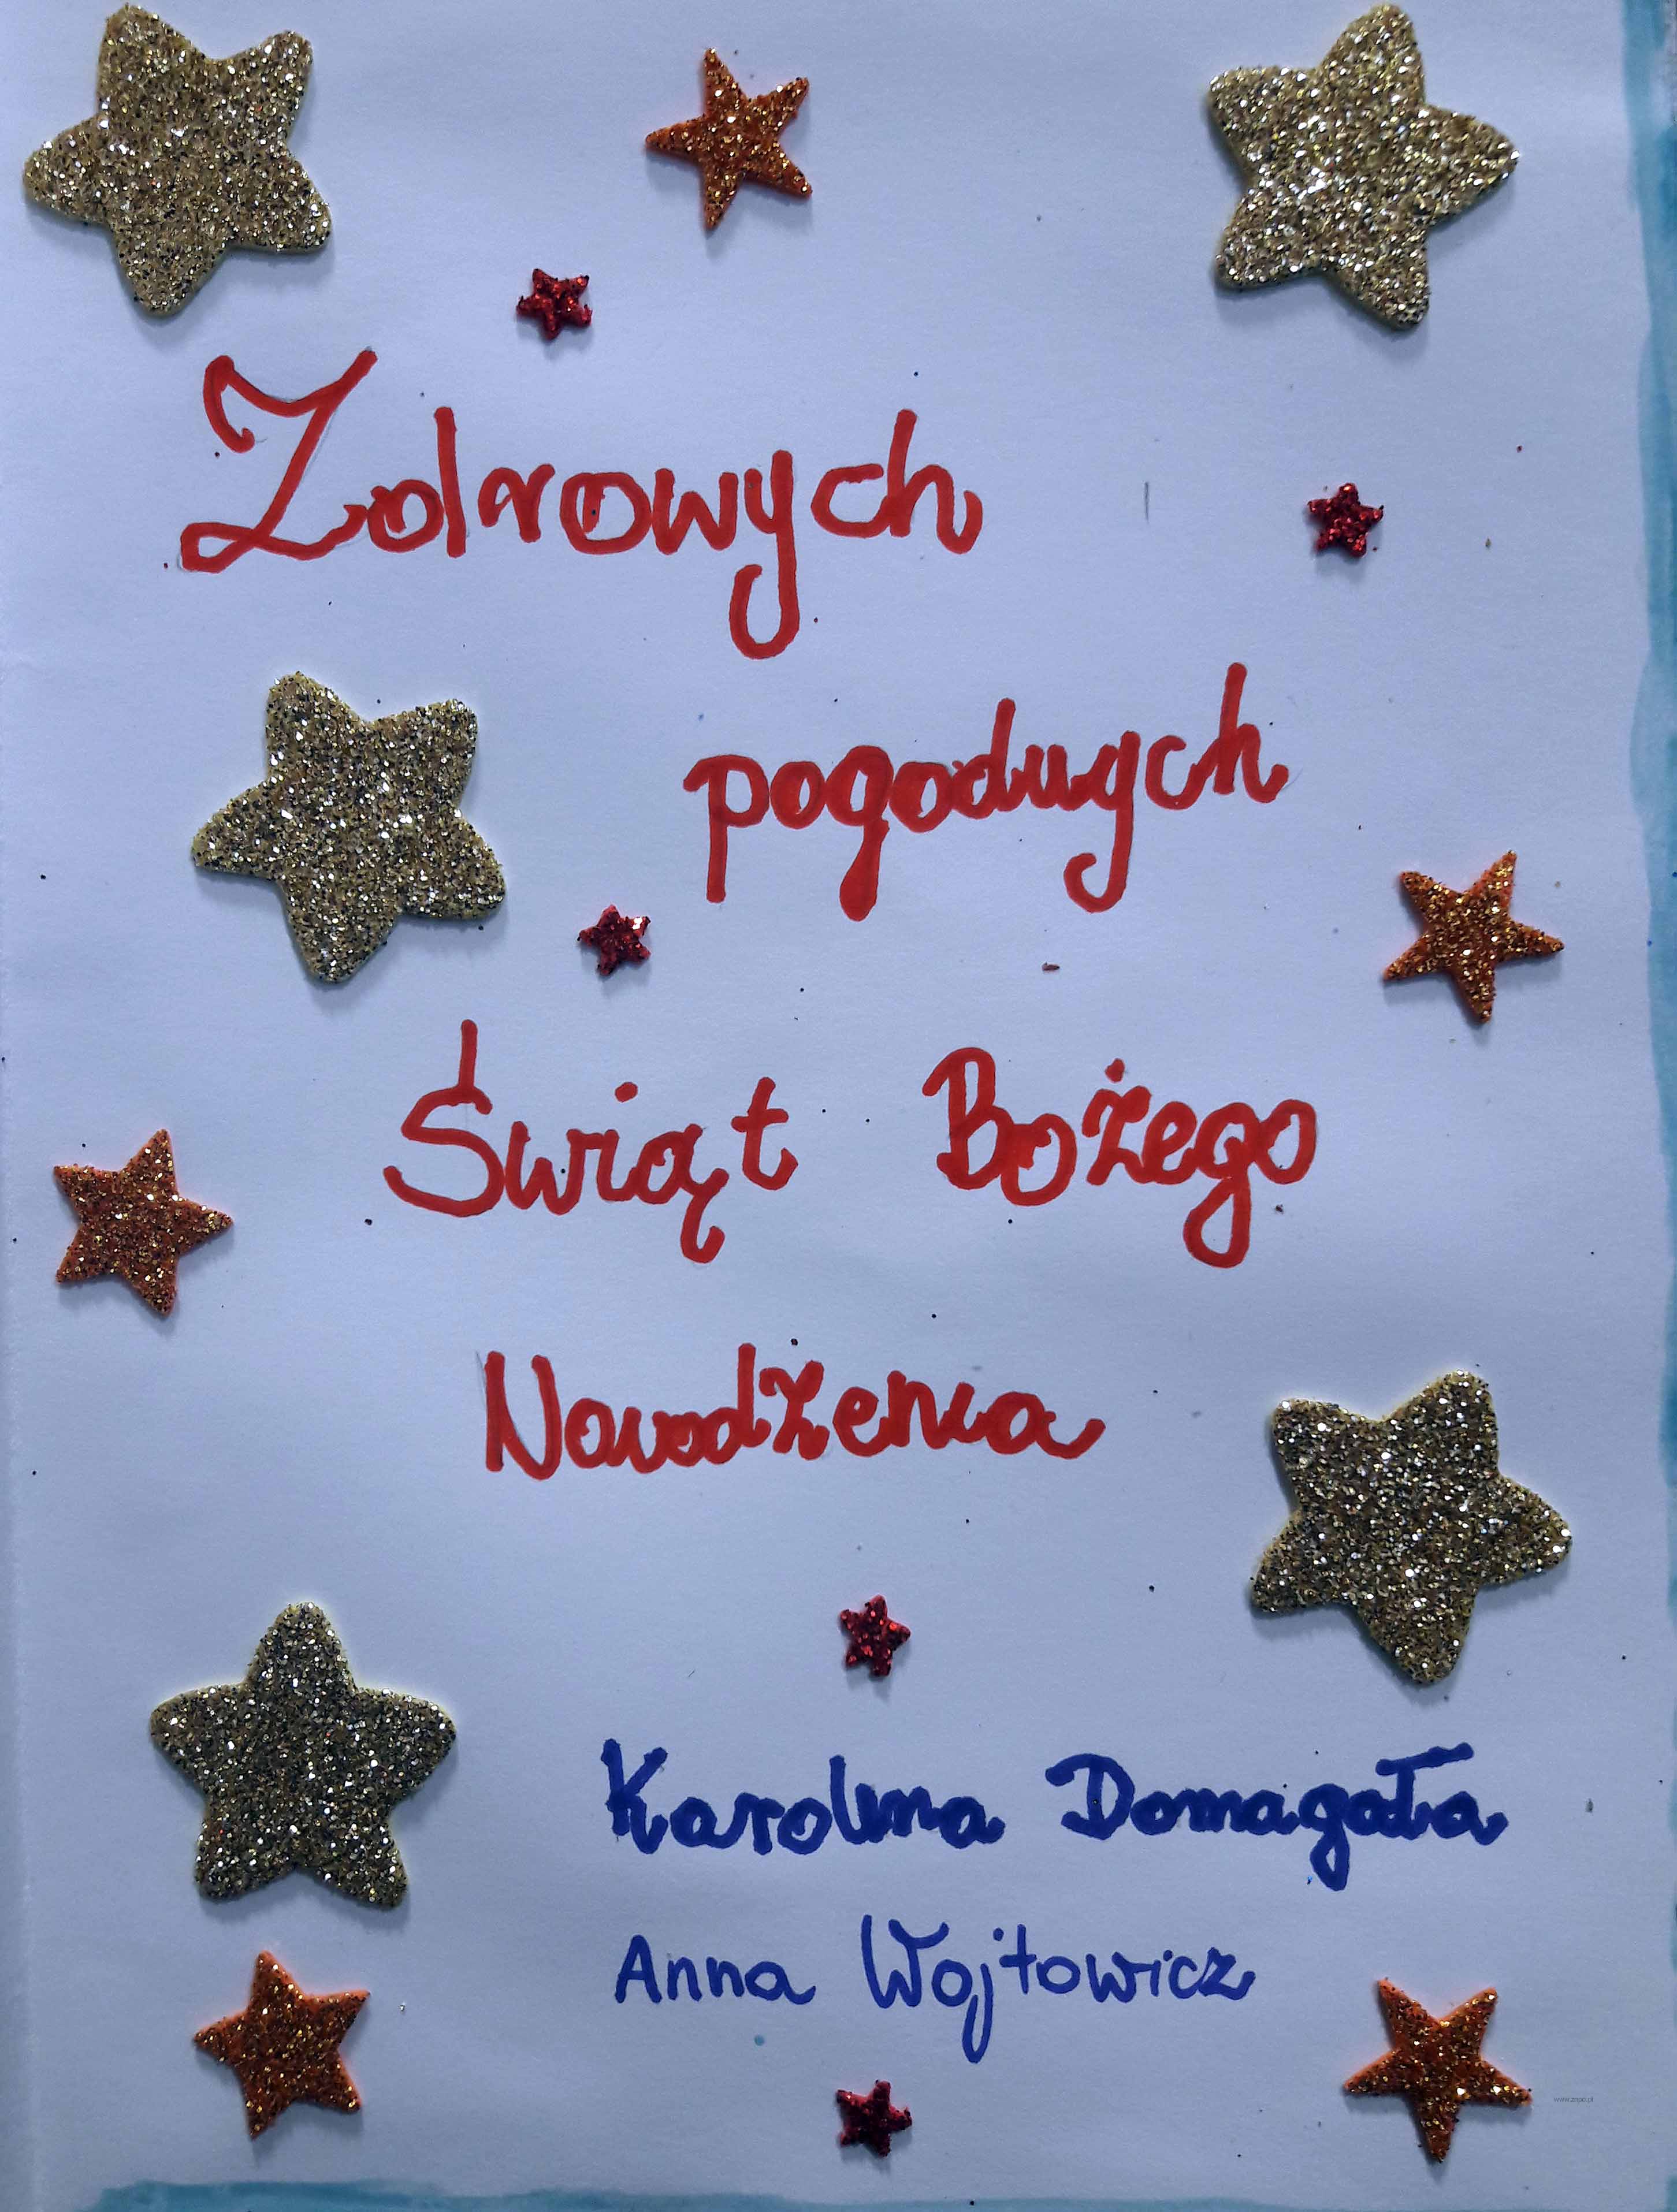 Zdrowych
pogodnych
Świąt Bożego
Narodzenia
Karolina Domagała
Anna Wojtowicz